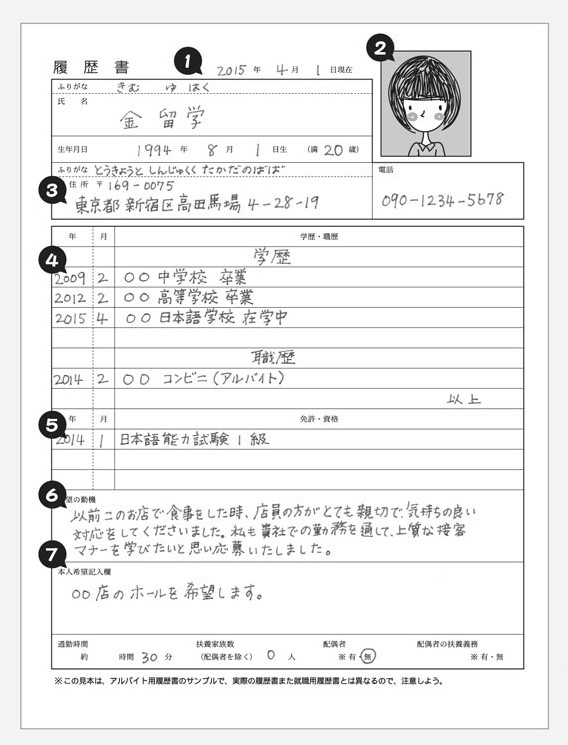 履歴書 1 2015年 4月 1日現在 2
ふりがな きむ ゆ はく
氏 名 金 留学
生年月日 1994年 8月 1日生 (満 20 歳)
ふりがな とうきょうと しんじゅくく たかだのばば 電話
3 住所 〒169-0075
東京都 新宿区 高田馬場 4-28-19 090-1234-5678
年 月 学歴・職歴
4 学歴
2009 2 〇〇 中学校 卒業
2012 2 〇〇 高等学校 卒業
2015 4 〇〇 日本語学校 在学中
職歴
2014 2 〇〇 コンビニ(アルバイト)
以上
5 年 月 免許・資格
2014 1 日本語能力試験 1級
6 望の動機
以前このお店で食事をした時、店員の方がとても親切で、気持ちの良い
対応をしてくださいました。私も貴社での勤務を通して、上質な接客
7 マナーを学びたいと思い応募いたしました。
本人希望記入欄
〇〇店のホールを希望します。
通勤時間 扶養家族数 配偶者 配偶者の扶養義務
約 時間 30 分 (配偶者を除く) 0 人 ※有・無 ※有・無
※この見本は、アルバイト用履歴書のサンプルで、実際の履歴書また就職用履歴書とは異なるので、注意しよう。